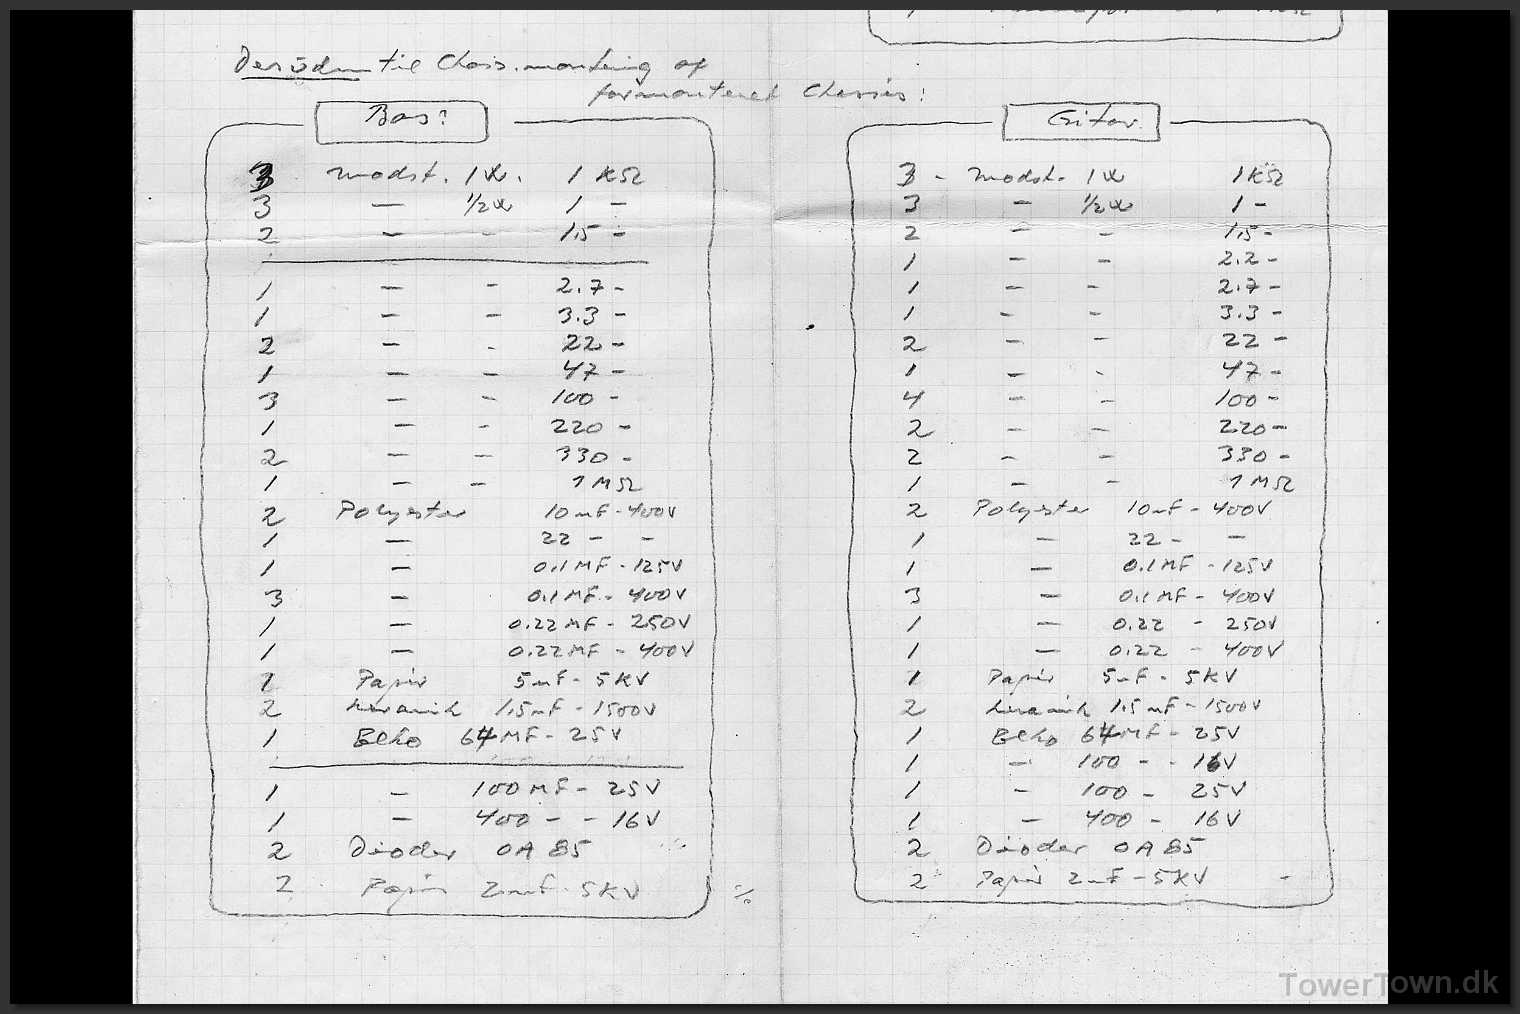 Desuden til Chas. montering af
formonteret Chassis:
Bas:
3 modst. 1W. 1 KΩ
3 — 1/2W 1 –
2 – - 1,5 -
1 – - 2.7 -
1 – - 3.3 -
2 – - 22 -
1 – - 47 -
3 – - 100 -
1 – - 220 -
2 – - 330 -
1 – - 1 MΩ
2 Polyester 10 nF - 400V
1 — 22 - -
1 — 0.1 MF - 125V
3 — 0.1 MF - 400V
1 — 0.22 MF - 250V
1 — 0.22 MF - 400V
1 Papir 5nF - 5KV
2 keramik 1,5nF - 1500V
1 Elko 64 MF - 25V
1 – 100 MF - 25V
1 – 400 - - 16V
2 Dioder OA 85
2 Papir 2nF - 5KV
%
Gitar
3 - modst. 1W 1KΩ
3 – 1/2W 1 -
2 – - 1,5 -
1 – - 2.2 -
1 – - 2.7 -
1 – - 3.3 -
2 – - 22 -
1 – - 47 -
4 – - 100 -
2 – - 220 -
2 – - 330 -
1 – - 1 MΩ
2 Polyester 10nF - 400V
1 — 22 - -
1 — 0.1MF - 125V
3 — 0.1 MF - 400V
1 — 0.22 - 250V
1 — 0.22 - 400V
1 Papir 5nF - 5KV
2 keramik 1,5 nF - 1500V
1 Elko 64 MF - 25V
1 – 100 - - 16V
1 – 100 - 25V
1 – 400 - 16V
2 Dioder OA 85
2 Papir 2nF - 5KV -
TowerTown.dk